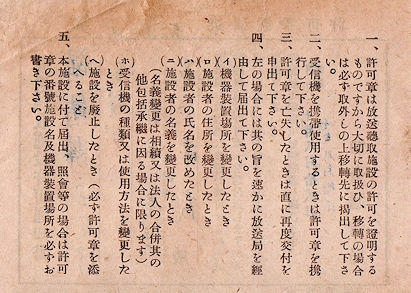 一、許可章は放送聽取施設の許可を證明する
ものですから大切に取扱ひ、移轉の場合
は必ず取外しの上移轉先に掲出して下さ
い。
二、受信機を携帶使用するときは許可章を携
行して下さい。
三、許可章を亡失したときは直に再度交付を
申出て下さい。
四、左の場合には其の旨を速かに放送局を經
由して届出て下さい。
(イ)機器裝置場所を變更したとき
(ロ)施設者の住所を變更したとき
(ハ)施設者の氏名を改めたとき
(ニ)施設者の名義を變更したとき
(名義變更は相續又は法人の合併其の
他包括承繼に因る場合に限ります)
(ホ)受信機の種類又は使用方法を變更した
とき
(ヘ)施設を廢止したとき(必ず許可章を添
へること)
五、本施設に付て届出、照會等の場合は許可
章の番號施設名及機器裝置場所を必ずお
書き下さい。